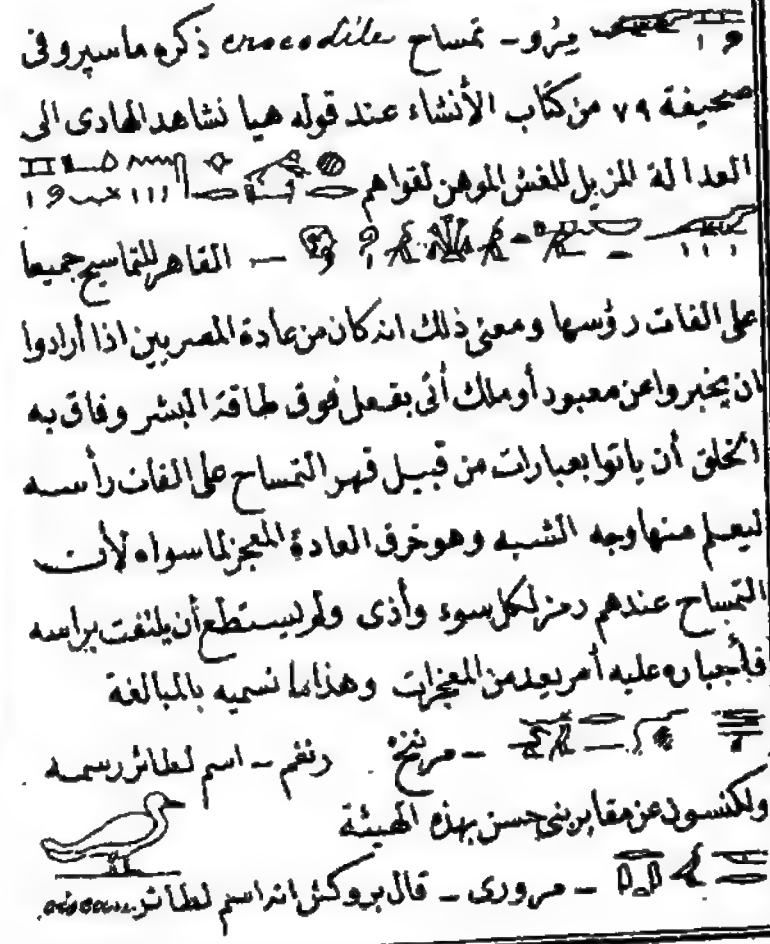 مِرُو - تمساح crocodile ذكره ماسپرو فى
صحيفة ٧٩ من كتاب الأنشاء عند قوله هيا نشاهد الهادى الى
العدالة المزيل للغش الموهن لقواهم
— القاهر للتماسيح جميعا
على القات رؤسها ومعنى ذلك انه كان من عادة المصريين اذا أرادوا
ان يخبروا عن معبود أو ملك أتى بفعل فوق طاقة البشر وفاق به
الخلق أن ياتوا بعبارات من قبيل قهر التمساح على الفات رأسه
ليعلم منها وجه الشبه وهو خرق العادة المعجز لما سواه لأن
التمساح عندهم رمز لكل سوء وأذى ولم يستطع أن يلتفت براسه
فأجباره عليه أمر يعد من المعجزات وهذا ما نسميه بالمبالغة
- مرنخ . رنغم - اسم لطائر رسمه
ولكنسون عن مقابر بنى حسن بهذه الهيئة
- مرورى - قال بروكش انه اسم لطائر